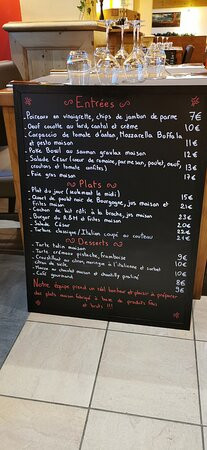 Entrées
- Poireaux en vinaigrette, chips de jambon de parme 7€
- Oeuf cocotte au lard, cantal et crème 10€
- Carpaccio de tomate d'antan, Mozzarella Buffala
et pesto maison 11€
- Poke Bowl au saumon gravlax maison 12€
- Salade César (coeur de romaine, parmesan, poulet, oeuf,
croutons et tomate confites) 13€
- Foie gras maison 17€
Plats
- Plat du jour (seulement le midi) 15€
- de poulet noir de Bourgogne, jus maison et
frites maison 21€
- Cochon de lait rôti à la broche, jus maison 23€
- Burger du R&H et frites maison 20€
- Salade César 22€
- Tartare classique/Italien coupé au couteau 21€
Desserts
- Tarte tatin maison
- Tarte crémeuse pistache, framboise 9€
- Croustillant au citron, meringue à l'italienne et sorbet
citron de sicile 10€
- Mousse au chocolat maison et chantilly praliné 8€
- Café gourmand 9€
Notre équipe prend un réel bonheur et plaisir à préparer
des plats maison fabriqué à base de produits frais
et bruts !!!